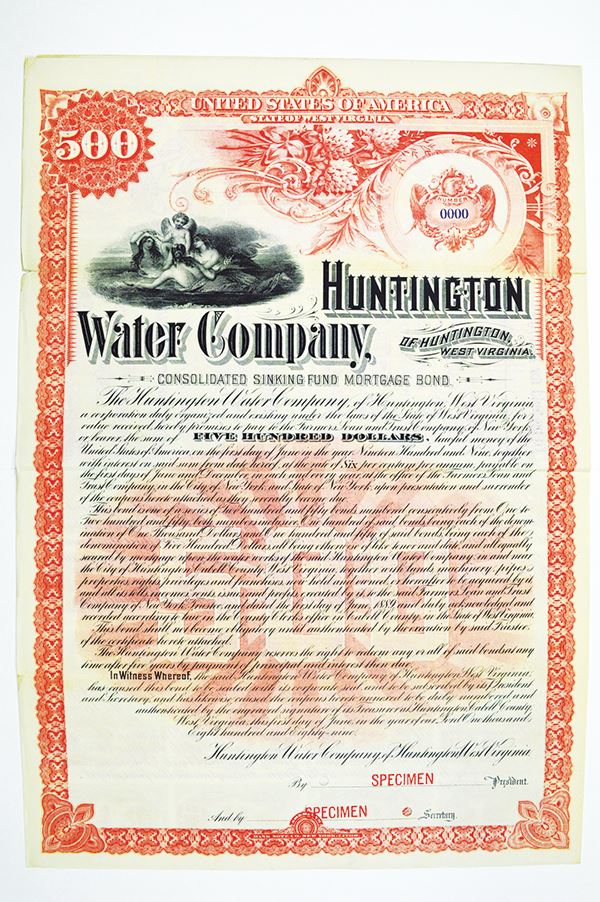 UNITED STATES OF AMERICA
STATE OF WEST VIRGINIA
500
NUMBER
0000
HUNTINGTON
Water Company,
OF HUNTINGTON,
WEST VIRGINIA.
CONSOLIDATED SINKING FUND MORTGAGE BOND.
The Huntington Water Company, of Huntington, West Virginia,
a corporation duly organized and existing under the laws of the State of West Virginia, for
value received, hereby promises to pay to the Farmers Loan and Trust Company, of New York,
or bearer, the sum of FIVE HUNDRED DOLLARS, lawful money of the
United States of America, on the first day of June in the year Nineteen Hundred and Nine, together
with interest on said sum from date hereof, at the rate of Six per centum per annum, payable on
the first days of June and December, in each and every year, at the office of the Farmers Loan and
Trust Company, in the City of New York, and State of New York, upon presentation and surrender
of the coupons hereto attached as they severally become due.
This bond is one of a series of two hundred and fifty bonds, numbered consecutively from One to
Two hundred and fifty, both inclusive, one hundred of said bonds being each of the denomi-
nation of One Thousand Dollars, and one hundred and fifty of said bonds, being each of the
denomination of Five Hundred Dollars, all being otherwise of like tenor and date, and equally
secured by mortgage on the works of the said Huntington Water Company in and near
the City of Huntington, Cabell County, West Virginia, together with all lands, machinery, pipes,
properties, rights, privileges and franchises, now held or owned, or hereafter to be acquired by it
and all its tolls, revenues, issues and profits, created by deed to the said Farmers Loan and Trust
Company of New York, Trustee, and dated the 1st day of June, 1889, and duly acknowledged and
recorded according to law in the County Clerks office in Cabell County, in the State of West Virginia.
This bond shall not become obligatory until authenticated by the execution by said Trustee,
of the certificate hereto attached.
The Huntington Water Company reserves the right to redeem any or all of said bonds at any
time after five years by payment of principal and interest then due.
In Witness Whereof, the said Huntington Water Company of Huntington West Virginia,
has caused this bond to be sealed with its corporate seal, and to be subscribed by its President
and Secretary, and has likewise caused the coupons hereto annexed to be duly numbered and
authenticated by the engraved signature of its Treasurer in Huntington Cabell County,
West Virginia, this first day of June, in the year of our Lord One thousand
Eight hundred and Eighty-nine.
Huntington Water Company, of Huntington, West Virginia
By SPECIMEN President.
And by SPECIMEN Secretary.